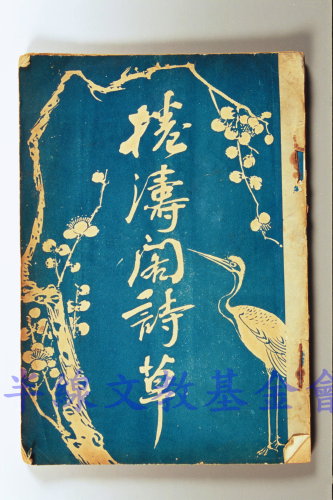 捲濤閣詩草
半線文教基金會